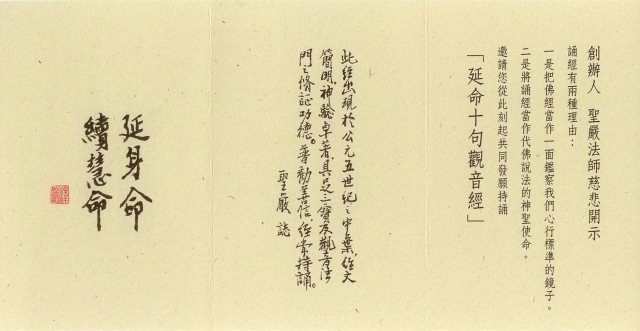 創辦人 聖嚴法師慈悲開示
誦經有兩種理由：
一是把佛經當作一面鑑察我們心行標準的鏡子。
二是將誦經當作代佛說法的神聖使命。
邀請您從此刻起共同發願持誦
「延命十句觀音經」
此經出現於公元五世紀之中葉，經文
簡明，神驗卓著，具足三寶及觀音法
門之修証功德。普勸善信，經常持誦。
聖嚴 誌
延身命
續慧命